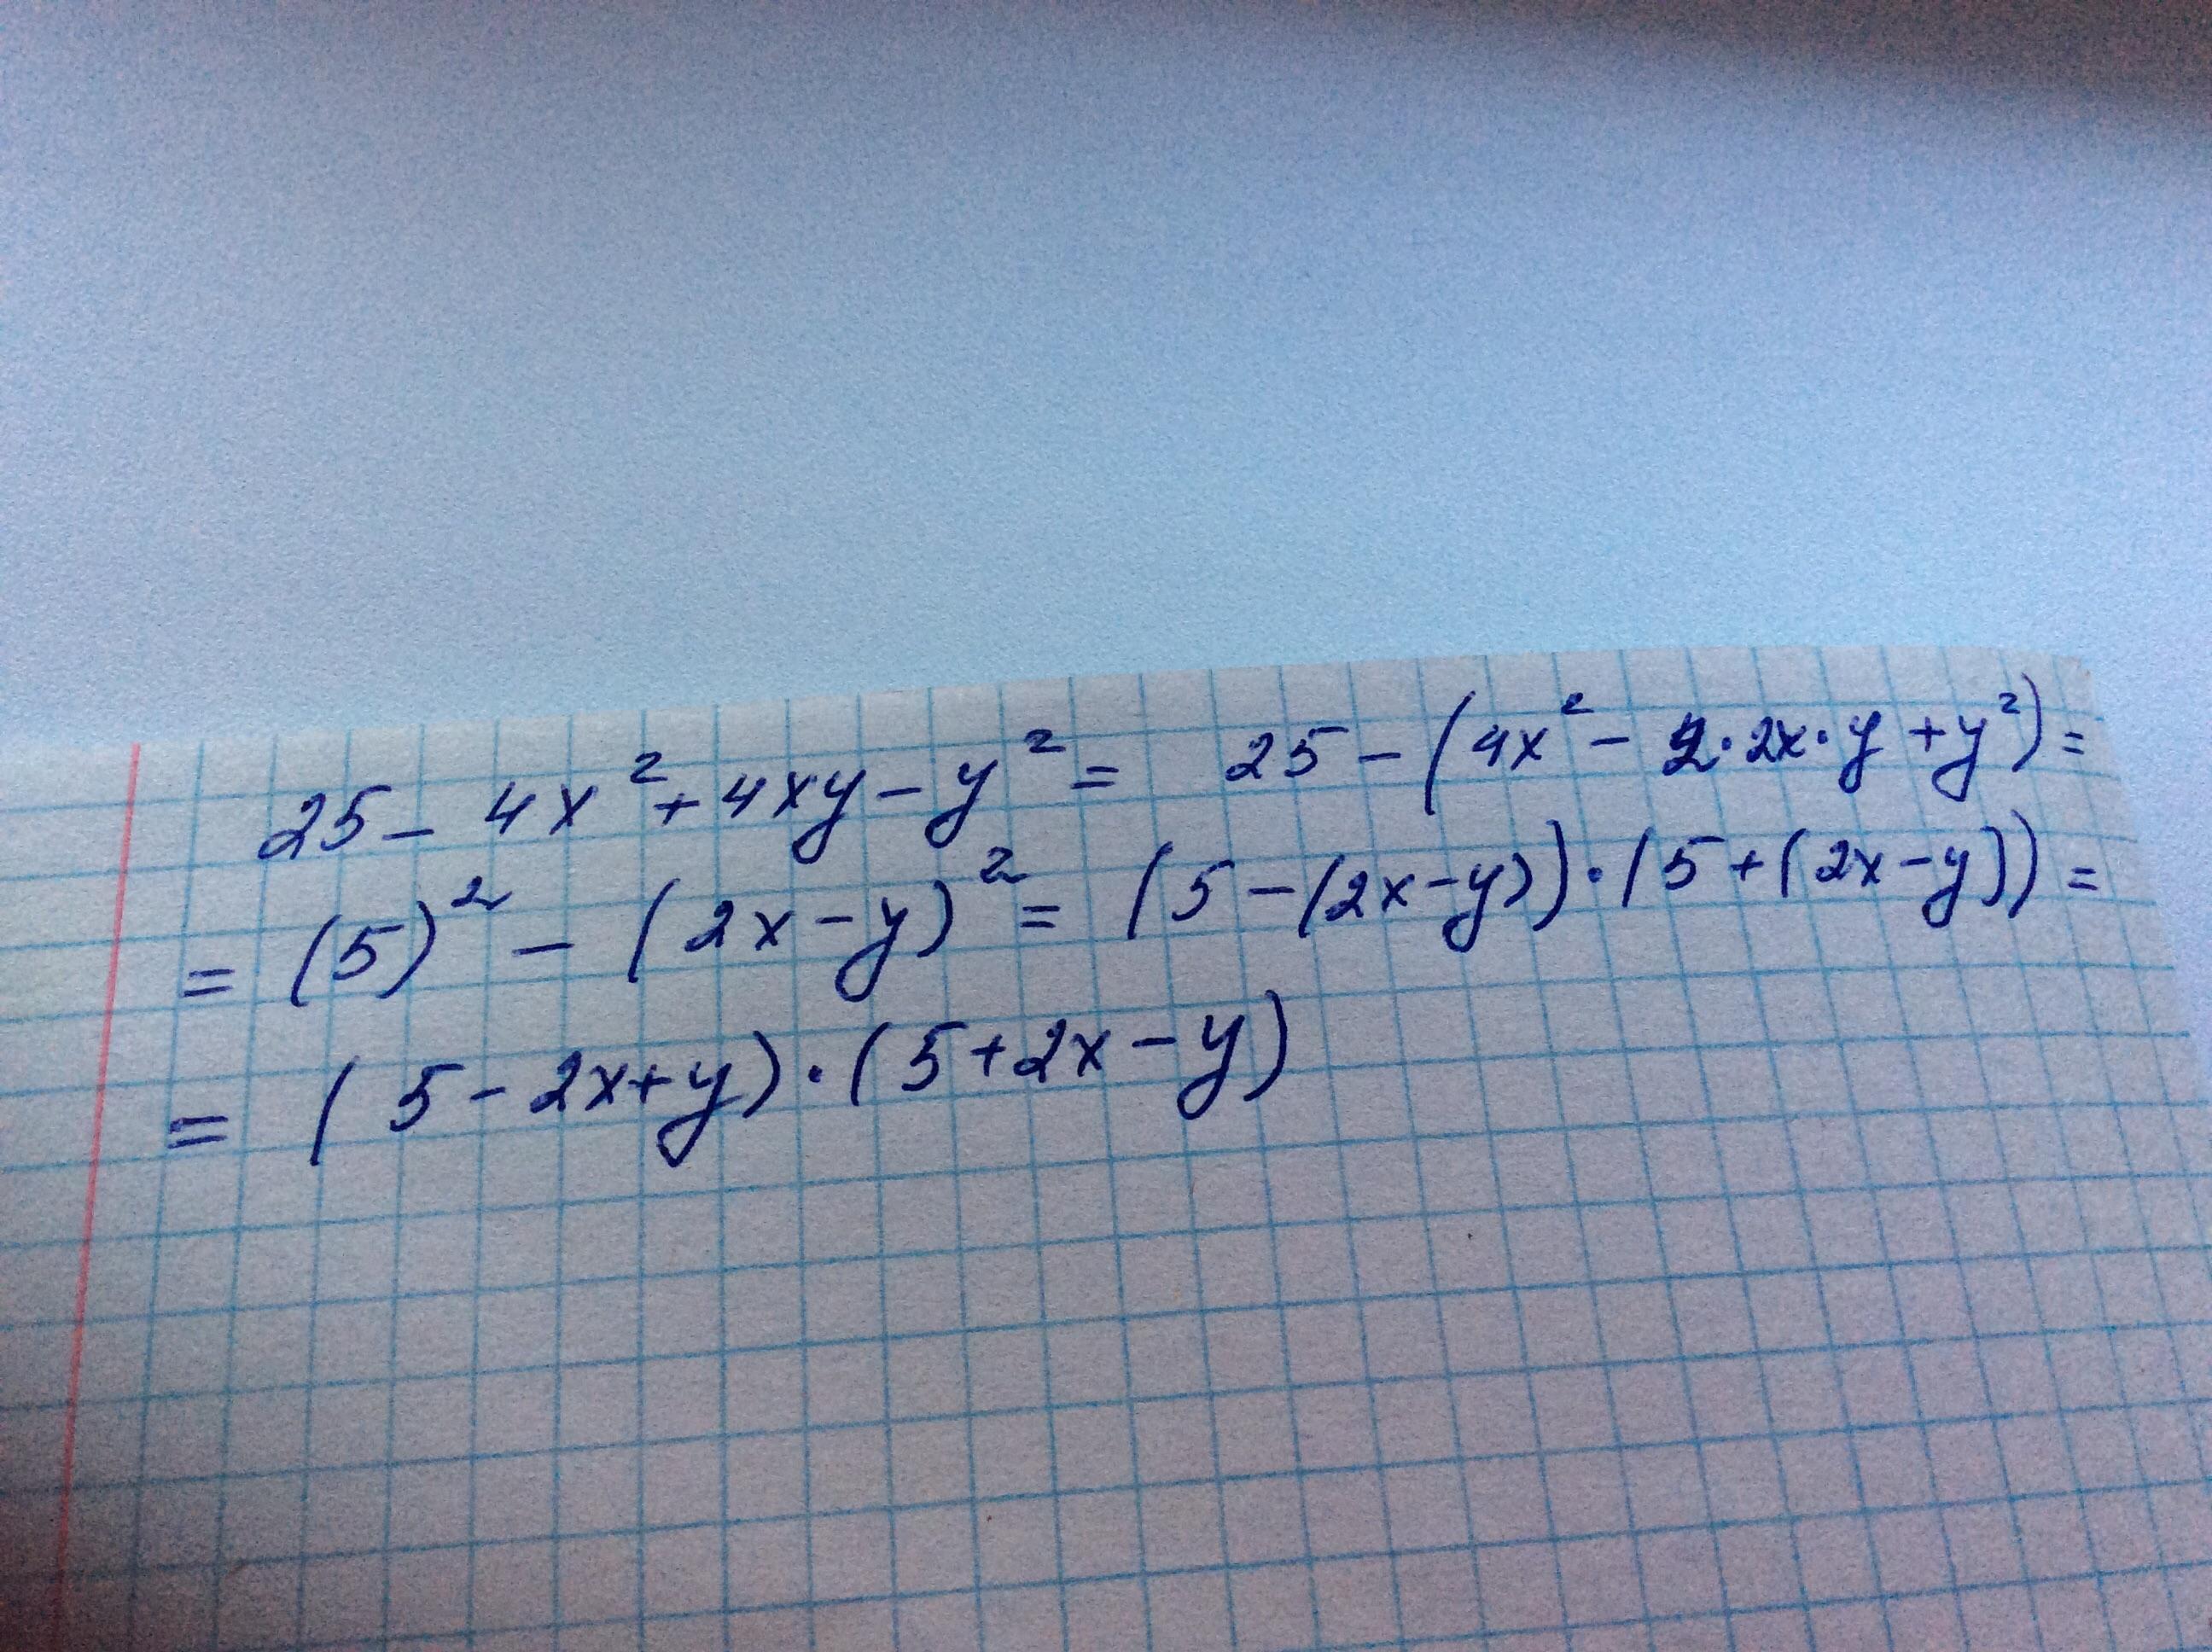 25 - 4x² + 4xy - y² = 25 - (4x² - 2·2x·y + y²) =
= (5)² - (2x - y)² = (5 - (2x - y))·(5 + (2x - y)) =
= (5 - 2x + y)·(5 + 2x - y)